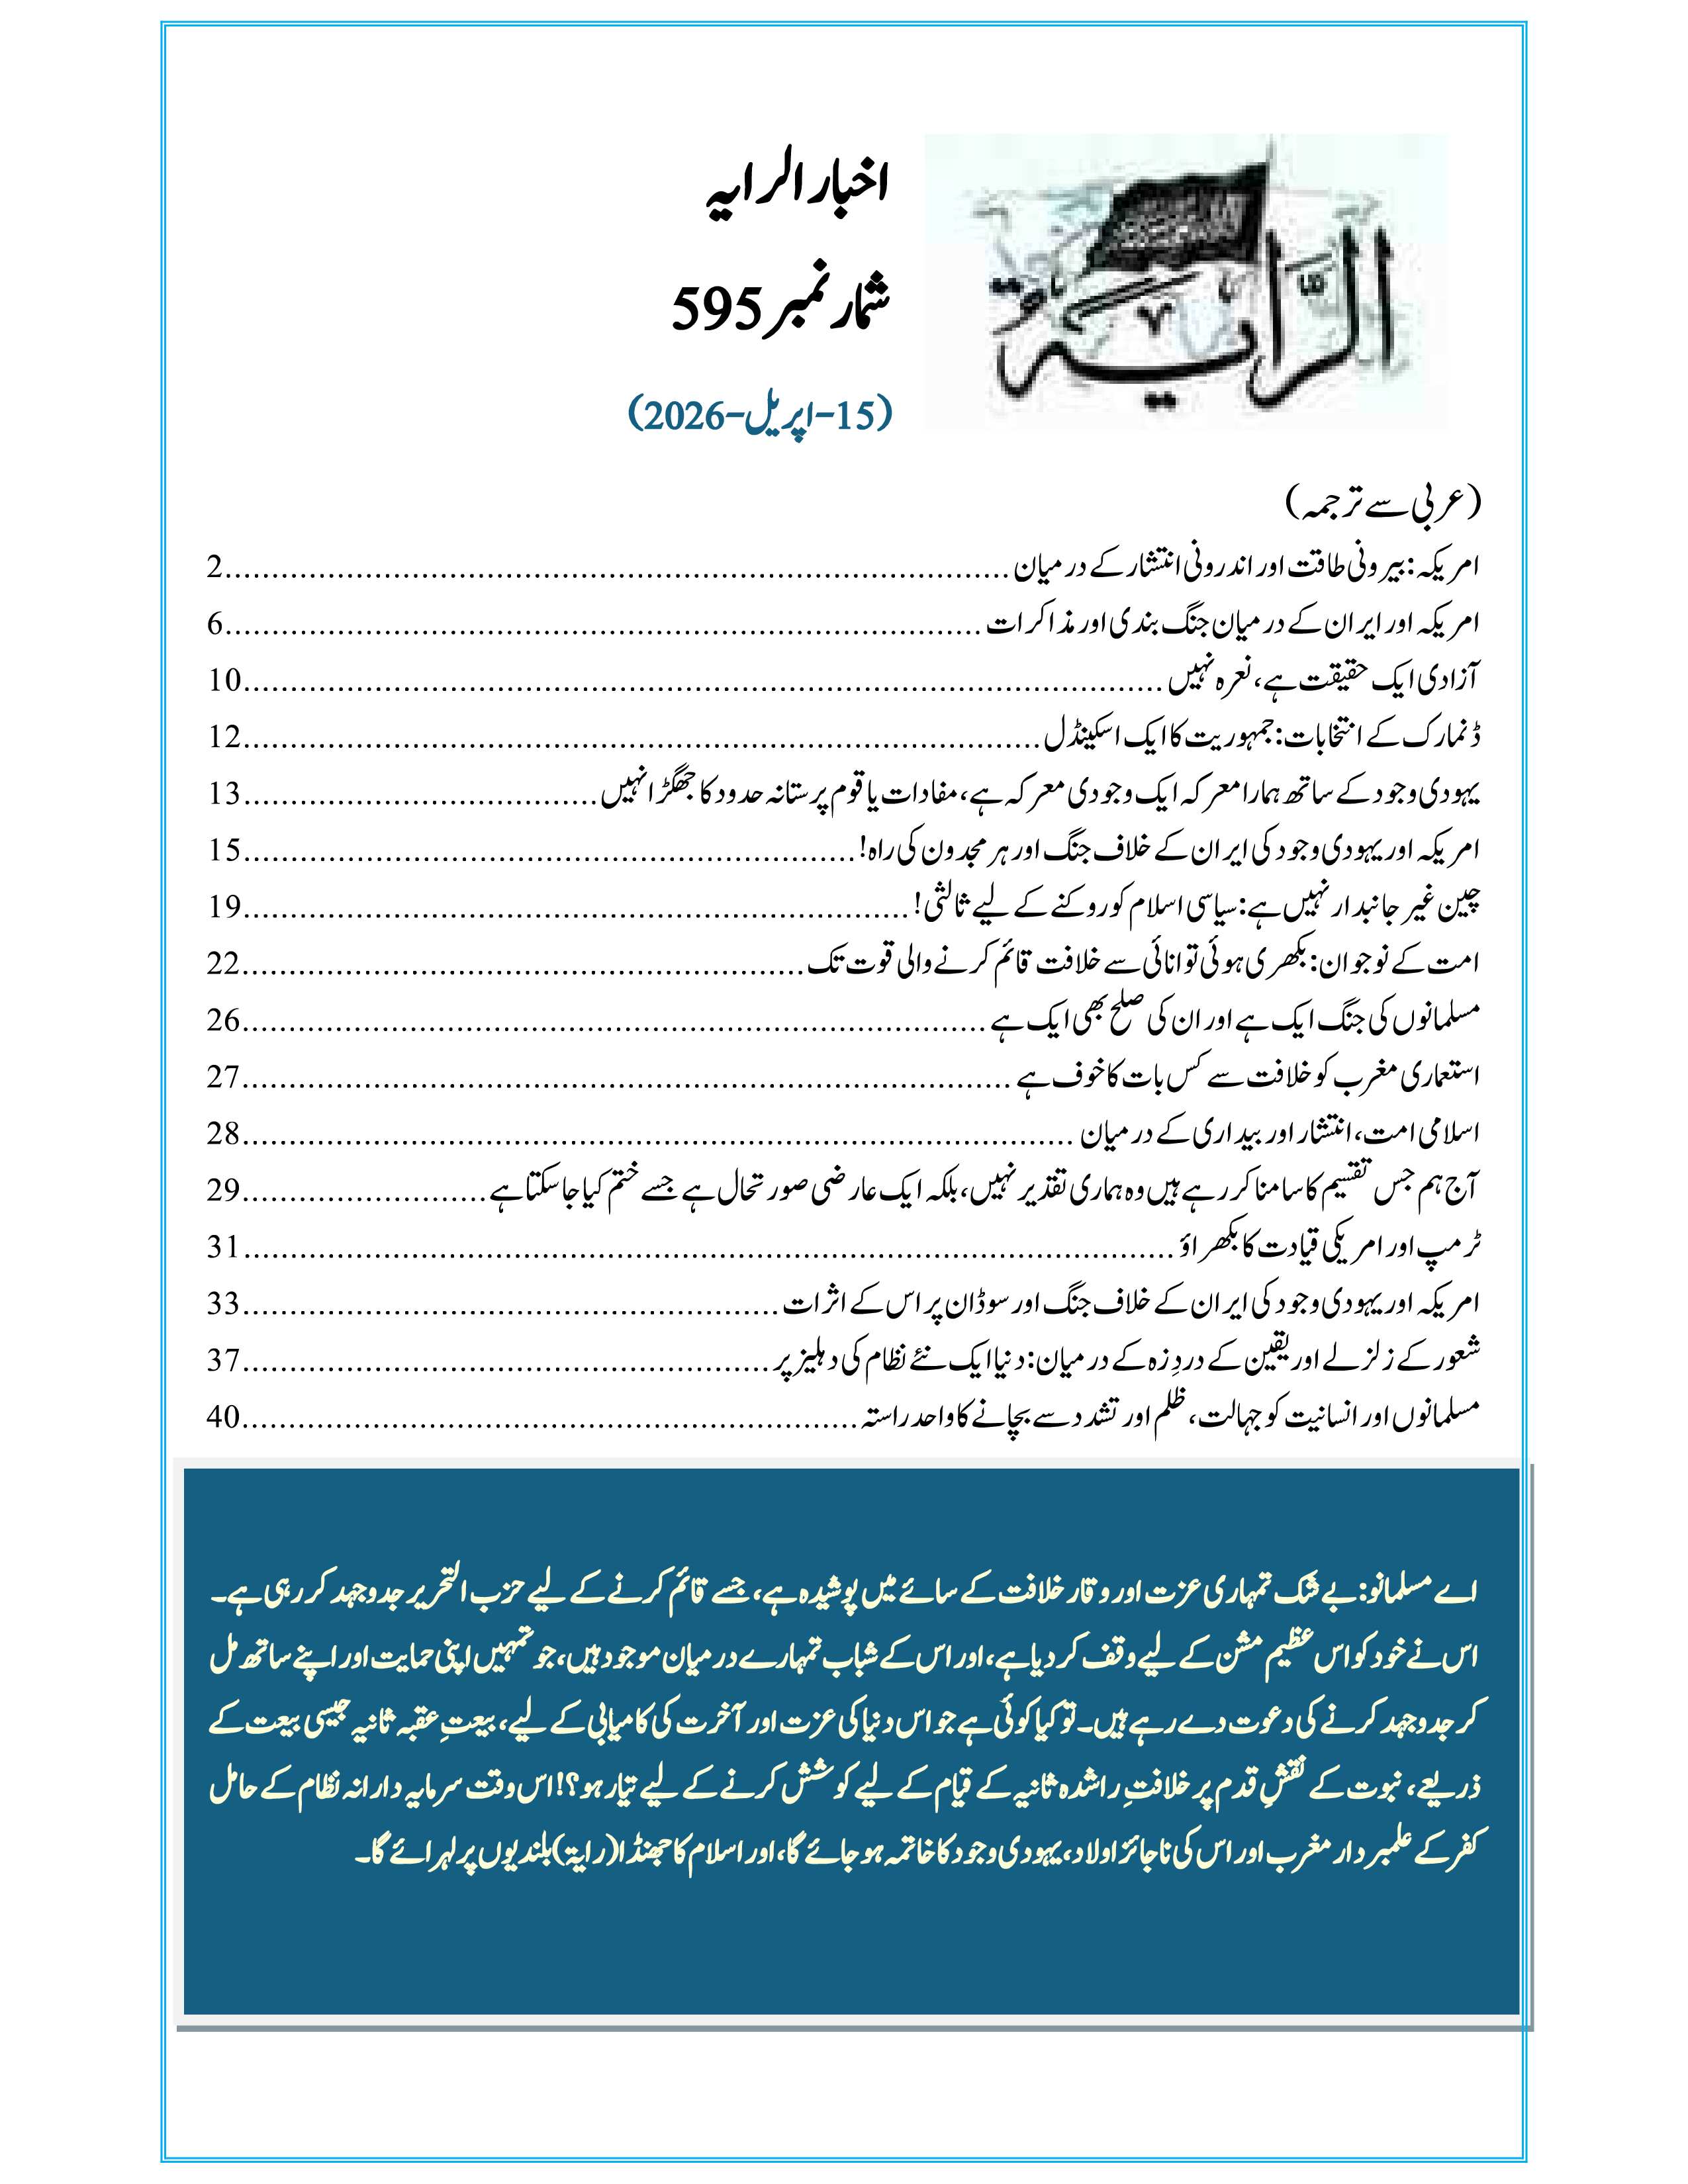 الرَّایة
اخبار الرایہ
شمار نمبر 595
(15-اپریل-2026)
(عربی سے ترجمہ)
امریکہ: بیرونی طاقت اور اندرونی انتشار کے درمیان 2
امریکہ اور ایران کے درمیان جنگ بندی اور مذاکرات 6
آزادی ایک حقیقت ہے، نعرہ نہیں 10
ڈنمارک کے انتخابات: جمہوریت کا ایک اسکینڈل 12
یہودی وجود کے ساتھ ہمارا معرکہ ایک وجودی معرکہ ہے، مفادات یا قوم پرستانہ حدود کا جھگڑا نہیں 13
امریکہ اور یہودی وجود کی ایران کے خلاف جنگ اور ہرمجدون کی راہ! 15
چین غیر جانبدار نہیں ہے: سیاسی اسلام کو روکنے کے لیے ثالثی! 19
امت کے نوجوان: بکھری ہوئی توانائی سے خلافت قائم کرنے والی قوت تک 22
مسلمانوں کی جنگ ایک ہے اور ان کی صلح بھی ایک ہے 26
استعماری مغرب کو خلافت سے کس بات کا خوف ہے 27
اسلامی امت، انتشار اور بیداری کے درمیان 28
آج ہم جس تقسیم کا سامنا کر رہے ہیں وہ ہماری تقدیر نہیں، بلکہ ایک عارضی صورتحال ہے جسے ختم کیا جا سکتا ہے 29
ٹرمپ اور امریکی قیادت کا بکھراؤ 31
امریکہ اور یہودی وجود کی ایران کے خلاف جنگ اور سوڈان پر اس کے اثرات 33
شعور کے زلزلے اور یقین کے دردِ زہ کے درمیان: دنیا ایک نئے نظام کی دہلیز پر 37
مسلمانوں اور انسانیت کو جہالت، ظلم اور تشدد سے بچانے کا واحد راستہ 40
اے مسلمانو: بے شک تمہاری عزت اور وقار خلافت کے سائے میں پوشیدہ ہے، جسے قائم کرنے کے لیے حزب التحریر جدوجہد کر رہی ہے۔
اس نے خود کو اس عظیم مشن کے لیے وقف کر دیا ہے، اور اس کے شباب تمہارے درمیان موجود ہیں، جو تمہیں اپنی حمایت اور اپنے ساتھ مل
کر جدوجہد کرنے کی دعوت دے رہے ہیں۔ تو کیا کوئی ہے جو اس دنیا کی عزت اور آخرت کی کامیابی کے لیے، بیعتِ عقبہ ثانیہ جیسی بیعت کے
ذریعے، نبوت کے نقشِ قدم پر خلافتِ راشدہ ثانیہ کے قیام کے لیے کوشش کرنے کے لیے تیار ہو؟! اس وقت سرمایہ دارانہ نظام کے حامل
کفر کے علمبردار مغرب اور اس کی ناجائز اولاد، یہودی وجود کا خاتمہ ہو جائے گا، اور اسلام کا جھنڈا (رایۃ) بلندیوں پر لہرائے گا۔